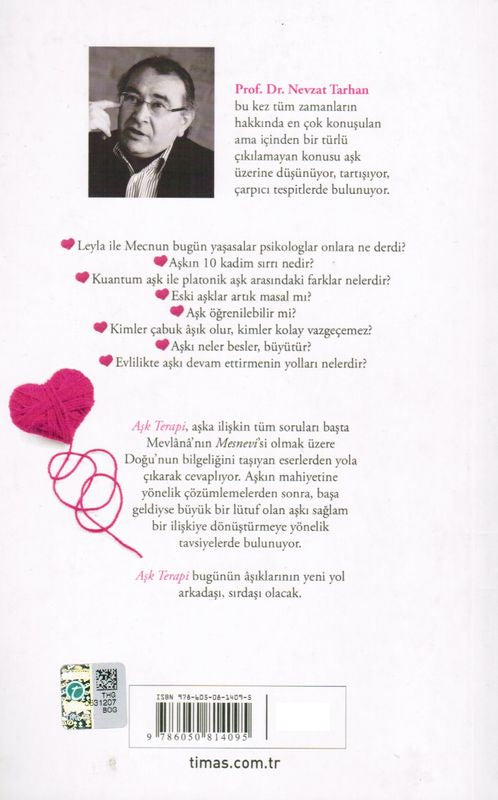 Prof. Dr. Nevzat Tarhan
bu kez tüm zamanların
hakkında en çok konuşulan
ama içinden bir türlü
çıkılamayan konusu aşk
üzerine düşünüyor, tartışıyor,
çarpıcı tespitlerde bulunuyor.
Leyla ile Mecnun bugün yaşasalar psikologlar onlara ne derdi?
Aşkın 10 kadim sırrı nedir?
Kuantum aşk ile platonik aşk arasındaki farklar nelerdir?
Eski aşklar artık masal mı?
Aşk öğrenilebilir mi?
Kimler çabuk âşık olur, kimler kolay vazgeçemez?
Aşkı neler besler, büyütür?
Evlilikte aşkı devam ettirmenin yolları nelerdir?
Aşk Terapi, aşka ilişkin tüm soruları başta
Mevlânâ'nın Mesnevî'si olmak üzere
Doğu'nun bilgeliğini taşıyan eserlerden yola
çıkarak cevaplıyor. Aşkın mahiyetine
yönelik çözümlemelerden sonra, başa
geldiyse büyük bir lütuf olan aşkı sağlam
bir ilişkiye dönüştürmeye yönelik
tavsiyelerde bulunuyor.
Aşk Terapi bugünün âşıklarının yeni yol
arkadaşı, sırdaşı olacak.
THG
BOG
ISBN 978-605-08-1409-5
9 786050 814095
timas.com.tr